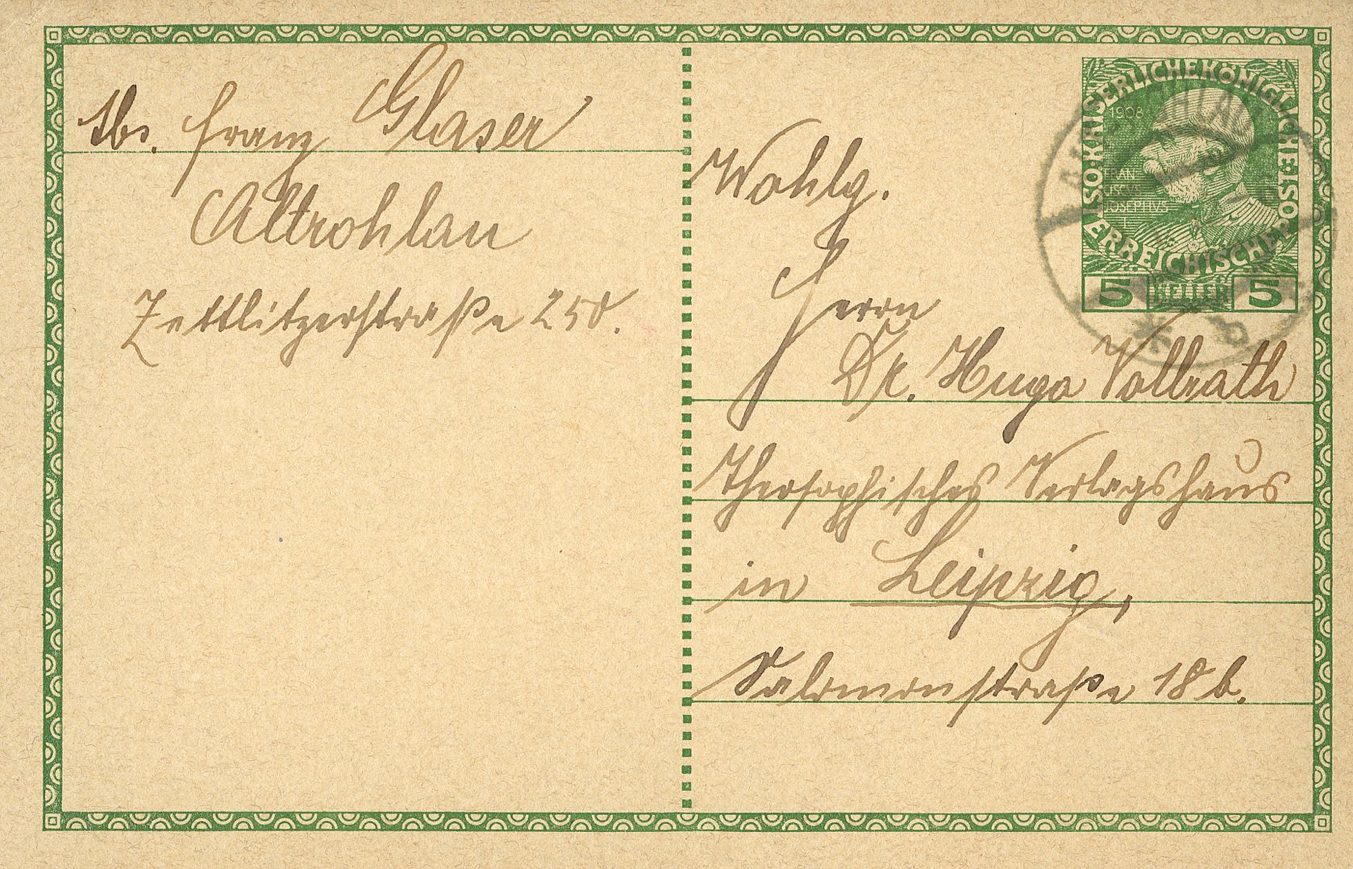 Abs. Franz Glaser
Altrohlau
Zettlitzerstraße 250.
Wohlg.
Herrn
Dr. Hugo Vollrath
Theosophisches Verlagshaus
in Leipzig,
Salomonstraße 18 b.
KAISERLICHEKÖNIGLICHE
ÖSTERREICHISCHE
1908
FRAN
CISCVS
JOSEPHVS
5 HELLER 5